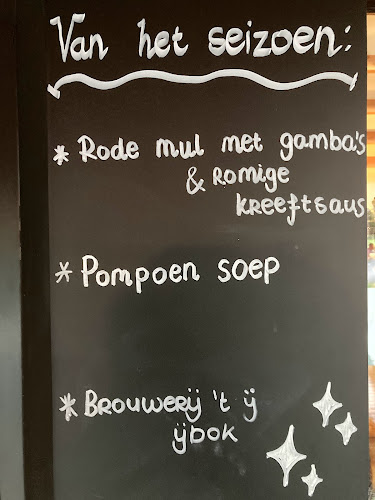 Van het seizoen:
* Rode mul met gamba's
& Romige
kreeftsaus
* Pompoen soep
* Brouwerij 't ij
ijbok